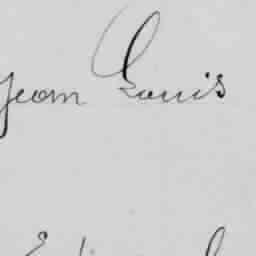 Jean Louis